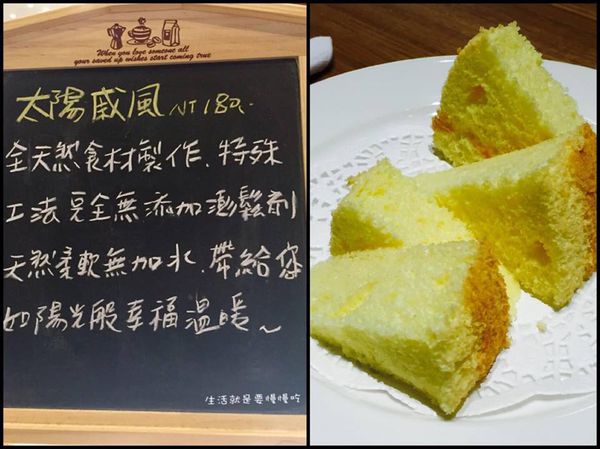 When you love someone all
your saved up wishes start coming true
太陽威風 NT 180.
全天然食材製作、特殊
工法完全無添加澎鬆劑
天然柔軟無加水、帶給您
如陽光般幸福溫暖~
生活就是要慢慢吃